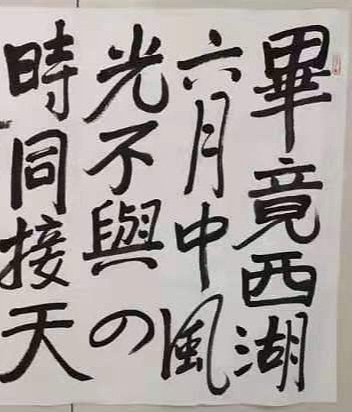 畢竟西湖
六月中風
光不與四
時同接天